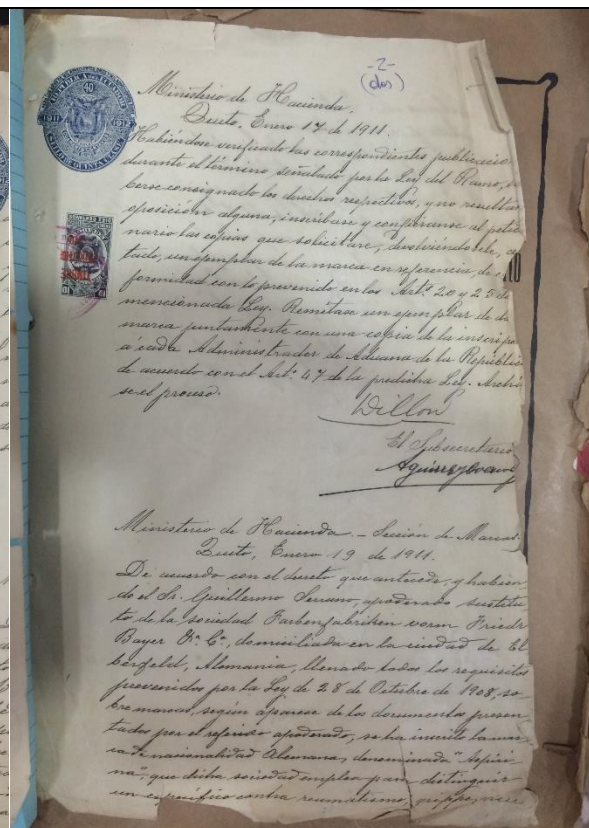 -2-
(dos)
REPUBLICA DEL ECUADOR
40
1911 1912
Ministerio de Hacienda.
Quito, Enero 17 de 1911.
Habiéndose verificado las correspondientes publicacio
durante el término señalado por la Ley del Ramo,
berse consignado los derechos respectivos, y no resultar
oposición alguna, inscríbase y confiéranse al peticio
nario las copias que solicitare, devolviéndosele,
tado, un ejemplar de la marca en referencia, de
formidad con lo prevenido en los Arts. 20 y 25 de
mencionada Ley. Remítase un ejemplar de la
marca juntamente con una copia de la inscripc
á cada Administrador de Aduana de la Repúblic
de acuerdo con el Art. 47 de la predicha Ley. Archí
se el proceso.
Dillon
El Subsecretario
Ministerio de Hacienda. - Sección de Marcas
Quito, Enero 19 de 1911.
De acuerdo con el decreto que antecede, y habien
do el Sr. Guillermo Serrano, apoderado sustitu
to de la sociedad Farbenfabriken vorm Friedr
Bayer & Co., domiciliada en la ciudad de El
berfeld, Alemania, llenado todos los requisitos
prevenidos por la Ley de 28 de Octubre de 1908, so
bre marcas, según aparece de los documentos presen
tados por el referido apoderado, se ha inscrito la mar
ca de nacionalidad Alemana, denominada "Aspiri
na", que dicha sociedad emplea para distinguir
un específico contra reumatismo, grippe,